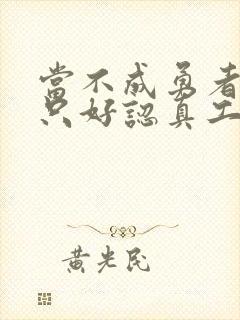 當不成勇者
只好認真工
黃光民